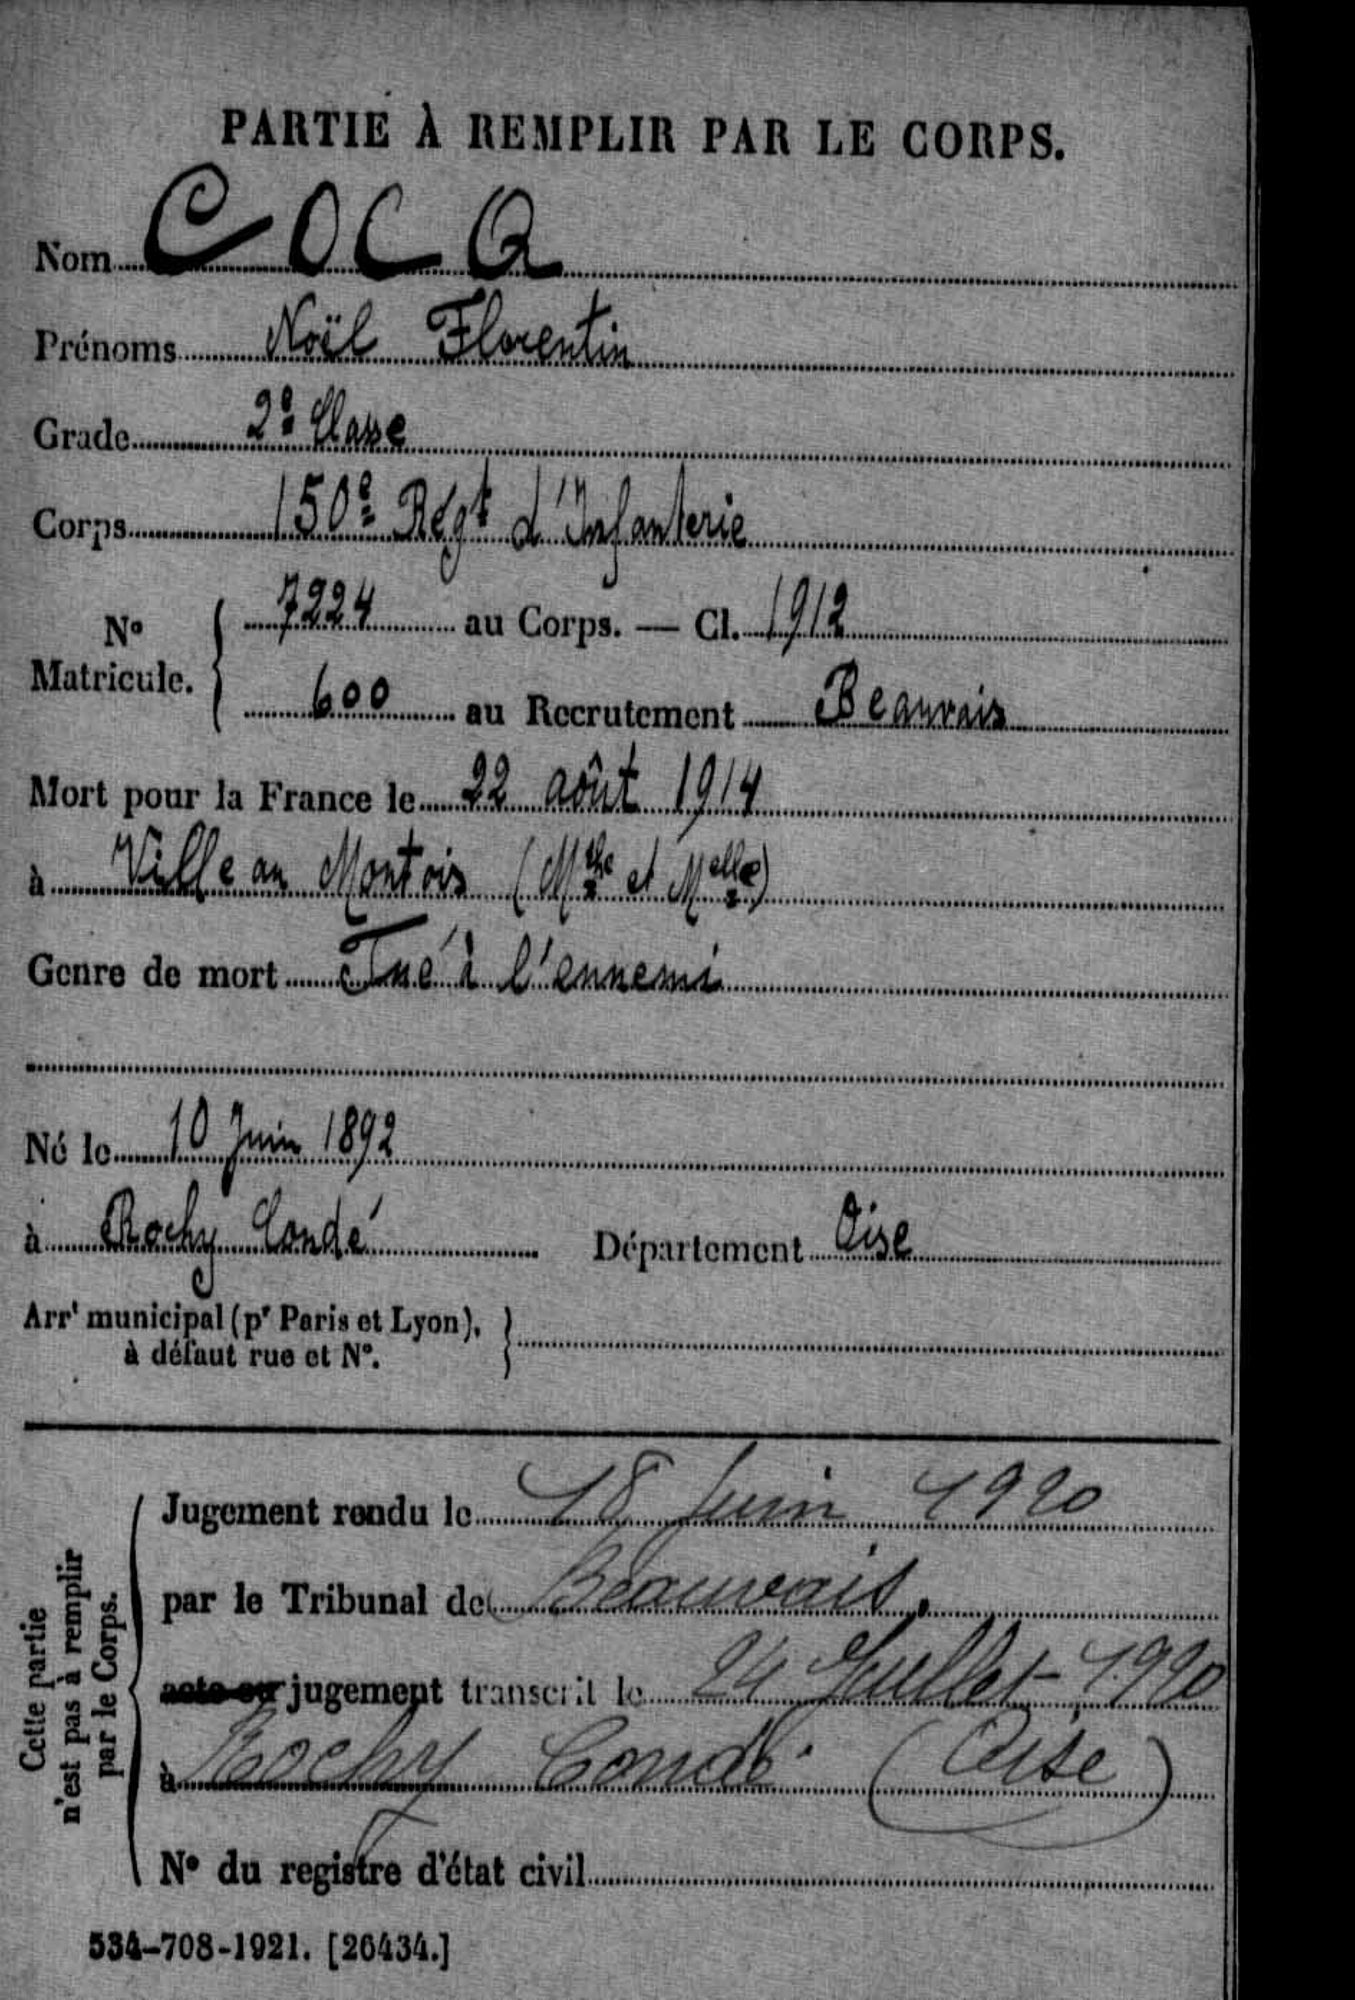 PARTIE À REMPLIR PAR LE CORPS.
Nom COCQ
Prénoms Noël Florentin
Grade 2e Classe
Corps 150e Régt d'Infanterie
No Matricule. { 7224 au Corps. — Cl. 1912
600 au Recrutement Beauvais
Mort pour la France le 22 août 1914
à Ville au Montois (Mthe et Melle)
Genre de mort Tué à l'ennemi
Né le 10 Juin 1892
à Rochy Condé Département Oise
Arrt municipal (pr Paris et Lyon), }
à défaut rue et No.
Cette partie
n'est pas à remplir
par le Corps.
Jugement rendu le 18 Juin 1920
par le Tribunal de Beauvais.
acte ou jugement transcrit le 24 Juillet 1920
à Rochy Condé (Oise)
No du registre d'état civil
534-708-1921. [26434.]